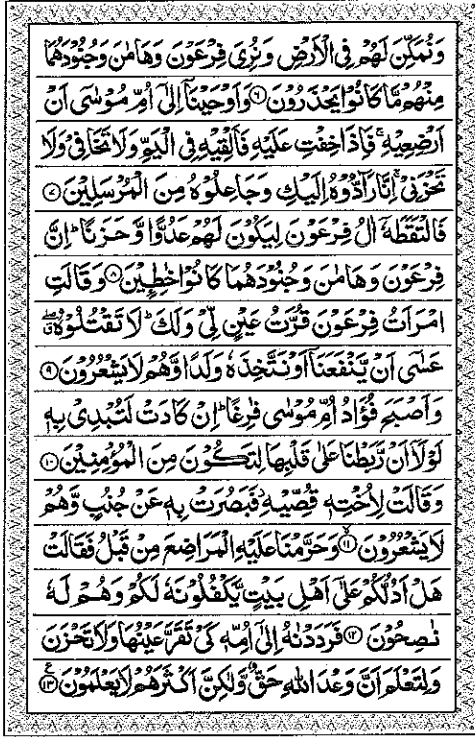 وَنُمَكِّنَ لَهُمْ فِي الْاَرْضِ وَنُرِيَ فِرْعَوْنَ وَهَامٰنَ وَجُنُوْدَهُمَا
مِنْهُمْ مَّا كَانُوْا يَحْذَرُوْنَ ۶ وَاَوْحَيْنَآ اِلٰٓى اُمِّ مُوْسٰٓى اَنْ
اَرْضِعِيْهِ ۚ فَاِذَا خِفْتِ عَلَيْهِ فَاَلْقِيْهِ فِي الْيَمِّ وَلَا تَخَافِيْ وَلَا
تَحْزَنِيْ ۚ اِنَّا رَآدُّوْهُ اِلَيْكِ وَجَاعِلُوْهُ مِنَ الْمُرْسَلِيْنَ ۷
فَالْتَقَطَهٗٓ اٰلُ فِرْعَوْنَ لِيَكُوْنَ لَهُمْ عَدُوًّا وَّحَزَنًا ؕ اِنَّ
فِرْعَوْنَ وَهَامٰنَ وَجُنُوْدَهُمَا كَانُوْا خٰطِـِٕيْنَ ۸ وَقَالَتِ
امْرَاَتُ فِرْعَوْنَ قُرَّتُ عَيْنٍ لِّيْ وَلَكَ ؕ لَا تَقْتُلُوْهُ ۖ
عَسٰٓى اَنْ يَّنْفَعَنَآ اَوْ نَتَّخِذَهٗ وَلَدًا وَّهُمْ لَا يَشْعُرُوْنَ ۹
وَاَصْبَحَ فُؤَادُ اُمِّ مُوْسٰى فٰرِغًا ؕ اِنْ كَادَتْ لَتُبْدِيْ بِهٖ
لَوْلَآ اَنْ رَّبَطْنَا عَلٰى قَلْبِهَا لِتَكُوْنَ مِنَ الْمُؤْمِنِيْنَ ۱۰
وَقَالَتْ لِاُخْتِهٖ قُصِّيْهِ ؗ فَبَصُرَتْ بِهٖ عَنْ جُنُبٍ وَّهُمْ
لَا يَشْعُرُوْنَ ۱۱ وَحَرَّمْنَا عَلَيْهِ الْمَرَاضِعَ مِنْ قَبْلُ فَقَالَتْ
هَلْ اَدُلُّكُمْ عَلٰٓى اَهْلِ بَيْتٍ يَّكْفُلُوْنَهٗ لَكُمْ وَهُمْ لَهٗ
نٰصِحُوْنَ ۱۲ فَرَدَدْنٰهُ اِلٰٓى اُمِّهٖ كَيْ تَقَرَّ عَيْنُهَا وَلَا تَحْزَنَ
وَلِتَعْلَمَ اَنَّ وَعْدَ اللّٰهِ حَقٌّ وَّلٰكِنَّ اَكْثَرَهُمْ لَا يَعْلَمُوْنَ ۱۳ ع